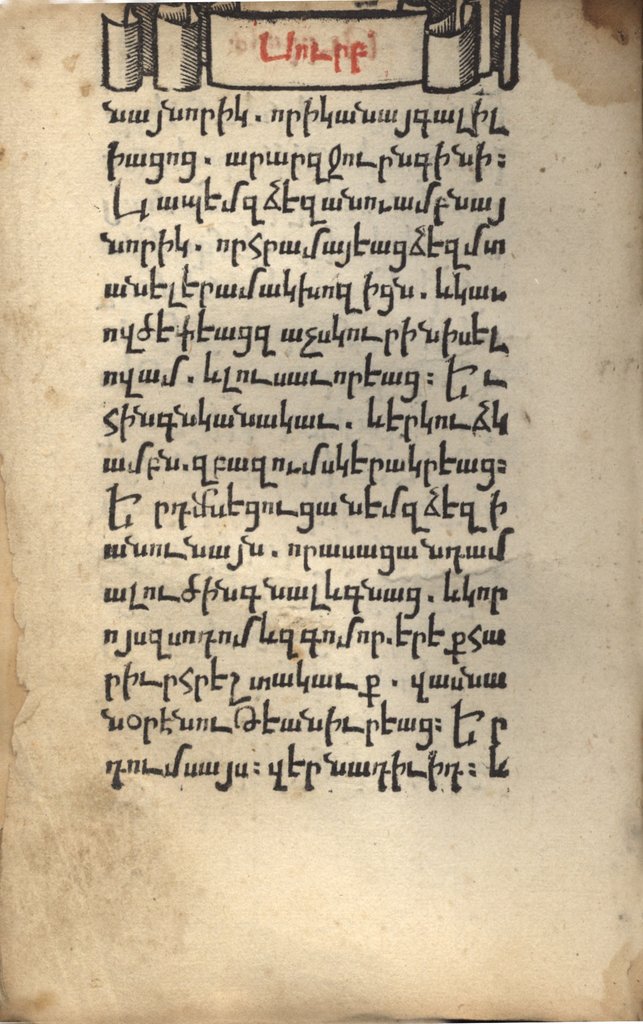 Սուրբ
նայնորիկ . որիկանայգալիլ
իացոց . արարզջուրնգինի :
Կապեմզձեզանուամբնայ
նորիկ . որհրամայեացձեզմտ
անելերամակխոզիցն . ևկաւ
ովժեփեացզաչսկուրինիսել
ովամ . ևլուսաւորեաց : Եւ
հինգնկանակաւ . ևերկուձկ
ամբն . զբազումսկերակրեաց :
Երդմնեցուցանեմզձեզի
անունայն . որասացանդամ
ալուծինգնալևգնաց . ևկոր
ոյսզսոդումևզգոմոր . երեքհա
րիւրհրեշտակաւք . վասնա
նօրէնութեանիւրեաց : Եր
դումնայս : վերնադիւիդ : և